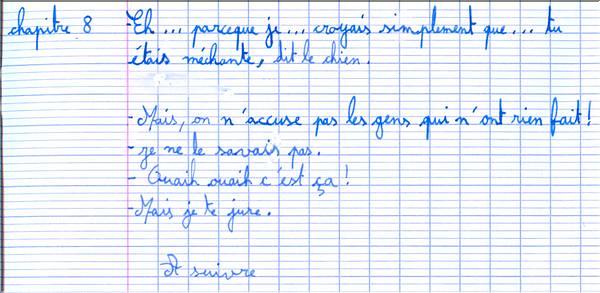 chapitre 8 -Eh ... parceque je ... croyais simplement que ... tu
étais méchante, dit le chien.
-Mais, on n'accuse pas les gens qui n'ont rien fait !
-je ne le savais pas.
- Ouaih ouaih c'est ça !
-Mais je te jure.
A suivre